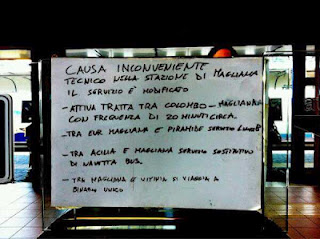 CAUSA INCONVENIENTE
TECNICO NELLA STAZIONE DI MAGLIANA
IL SERVIZIO È MODIFICATO
- ATTIVA TRATTA TRA COLOMBO - MAGLIANA
CON FREQUENZA DI 20 MINUTI CIRCA.
- TRA EUR MAGLIANA E PIRAMIDE SERVIZIO
- TRA ACILIA E MAGLIANA SERVIZIO SOSTITUTIVO
DI NAVETTA BUS.
- TRA MAGLIANA E VITINIA SI VIAGGIA A
BINARIO UNICO